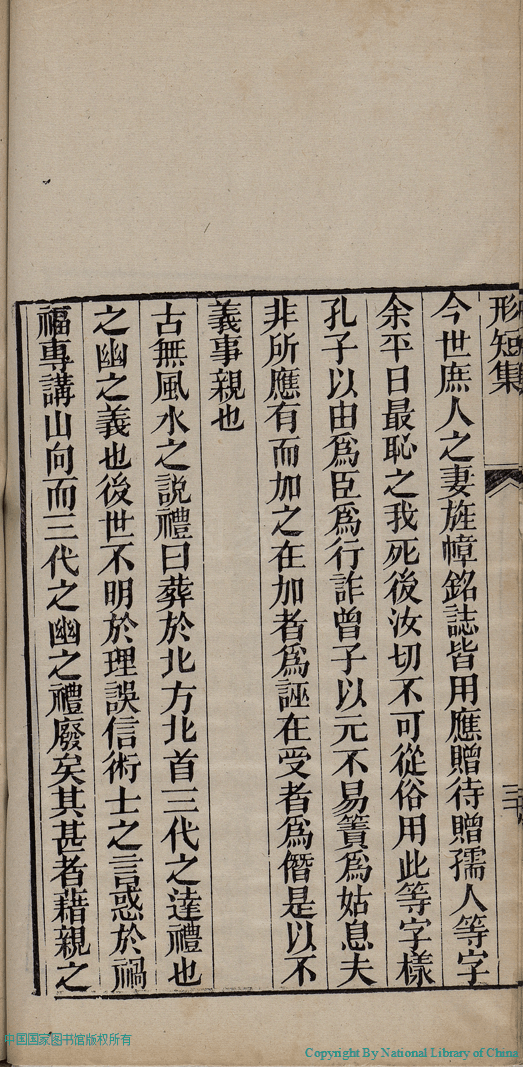 形短集
今世庶人之妻旌幛銘誌皆用應贈待贈孺人等字
余平日最恥之我死後汝切不可從俗用此等字樣
孔子以由爲臣爲行詐曾子以元不易簀爲姑息夫
非所應有而加之在加者爲誣在受者爲僭是以不
義事親也
古無風水之說禮曰葬於北方北首三代之達禮也
之幽之義也後世不明於理誤信術士之言惑於禍
福專講山向而三代之幽之禮廢矣其甚者藉親之
中国国家图书馆版权所有
Copyright By National Library of China